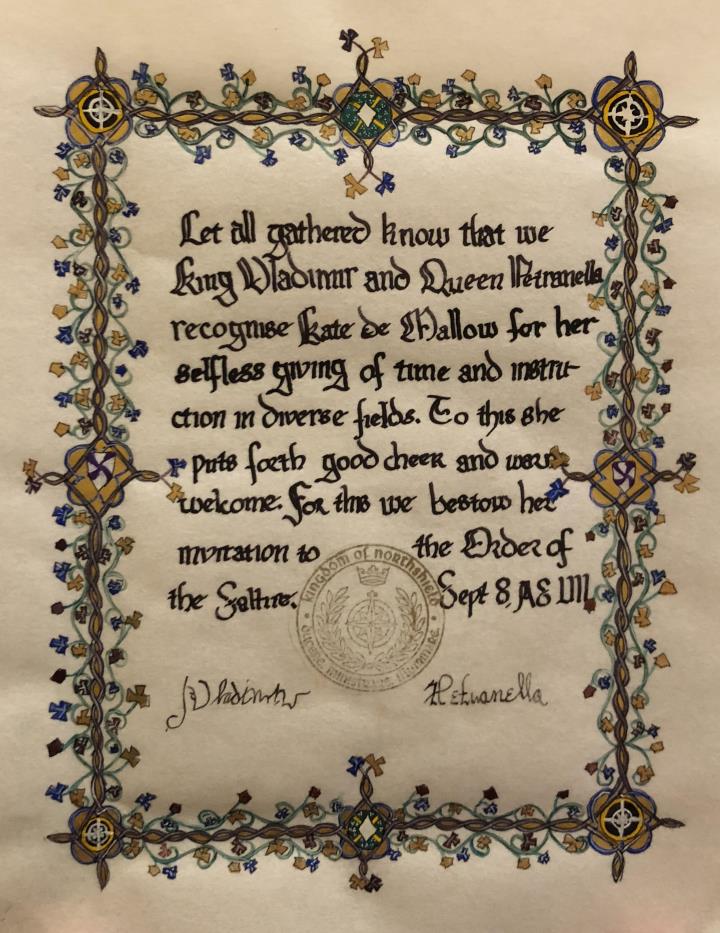 Let all gathered know that we
King Vladimir and Queen Petranella
recognise Kate de Mallow for her
selfless giving of time and instru-
ction in diverse fields. To this she
puts forth good cheer and warm
welcome. For this we bestow her
invitation to the Order of
the Saltire. Sept 8, AS LIII
kingdom of northshield
Vladimir Petranella